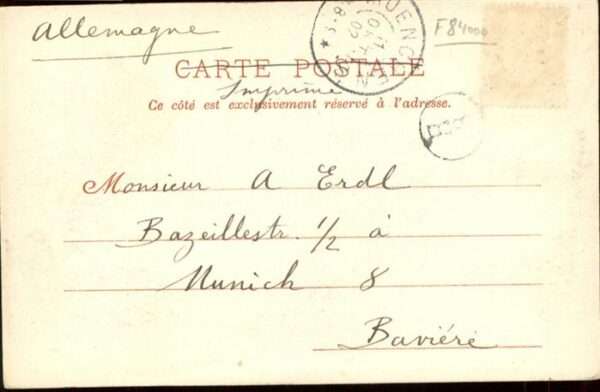 Allemagne
F84000
CARTE POSTALE
Imprimé
Ce côté est exclusivement réservé à l'adresse.
Monsieur A Erdl
Bazeillestr. 1/2 à
Munich 8
Bavière